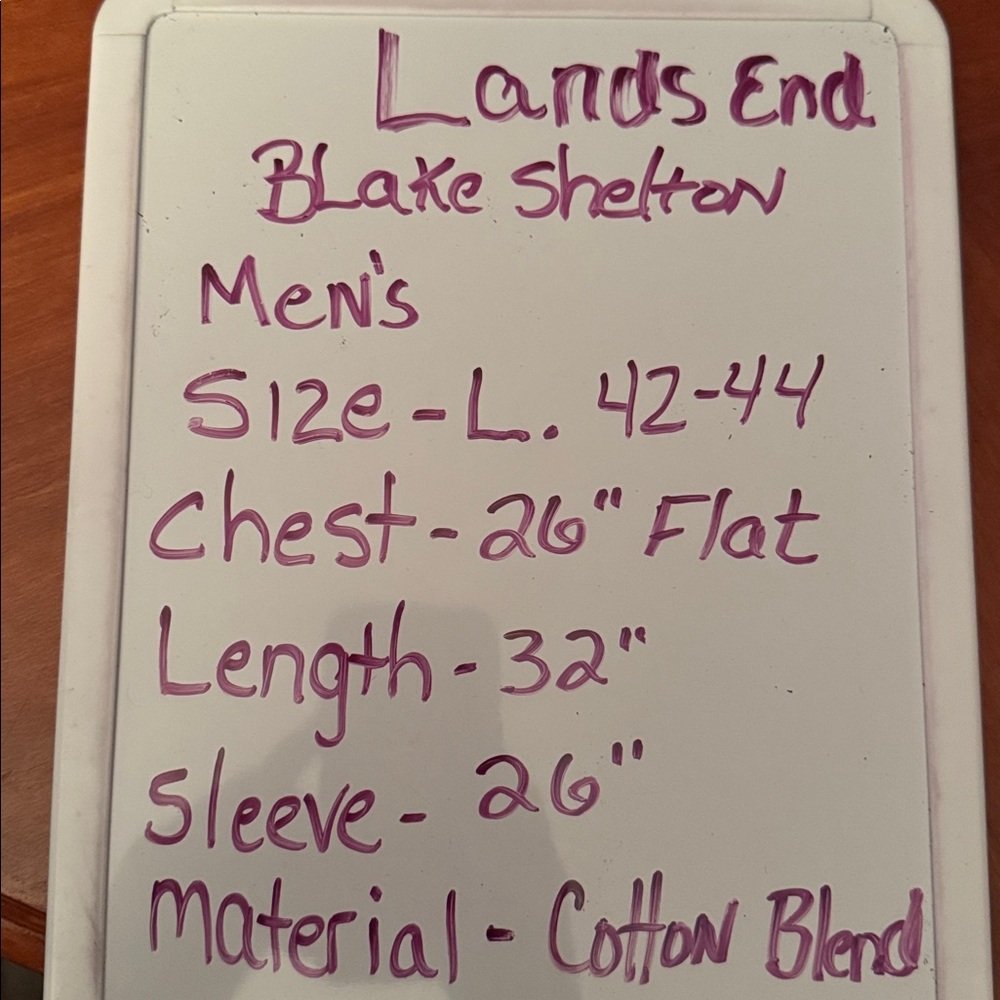 Lands End
Blake Shelton
Men's
Size - L. 42-44
Chest - 26" Flat
Length - 32"
Sleeve - 26"
Material - Cotton Blend